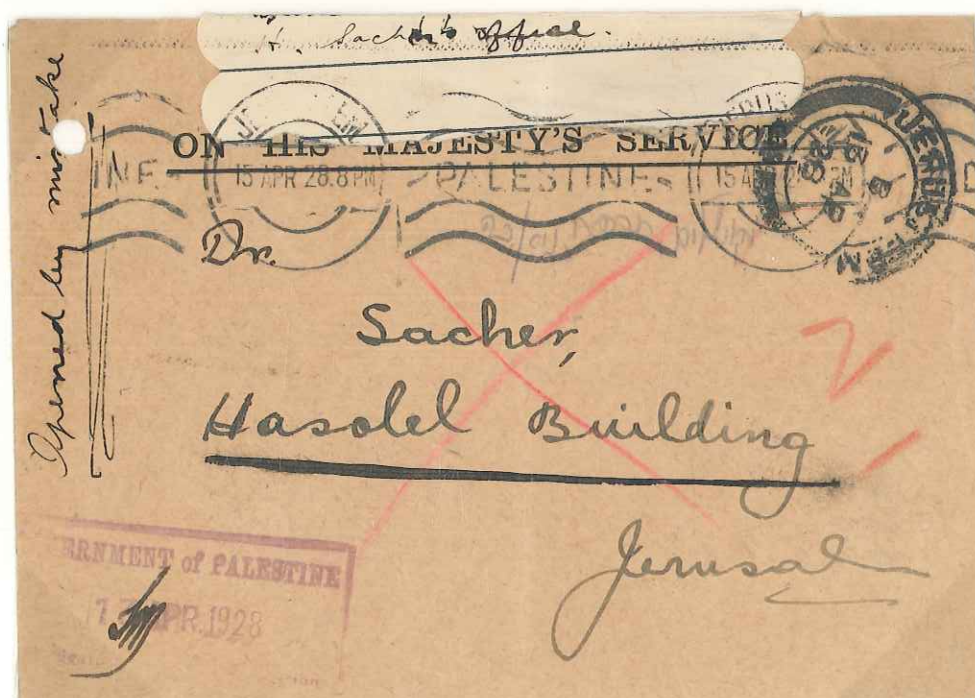 H. Sacher's office.
Opened by mistake
ON HIS MAJESTY'S SERVICE
15 APR 28.8 PM
PALESTINE
JERUS
Dr.
Sacher,
Hasolel Building
Jerusal
ERNMENT of PALESTINE
APR. 1928